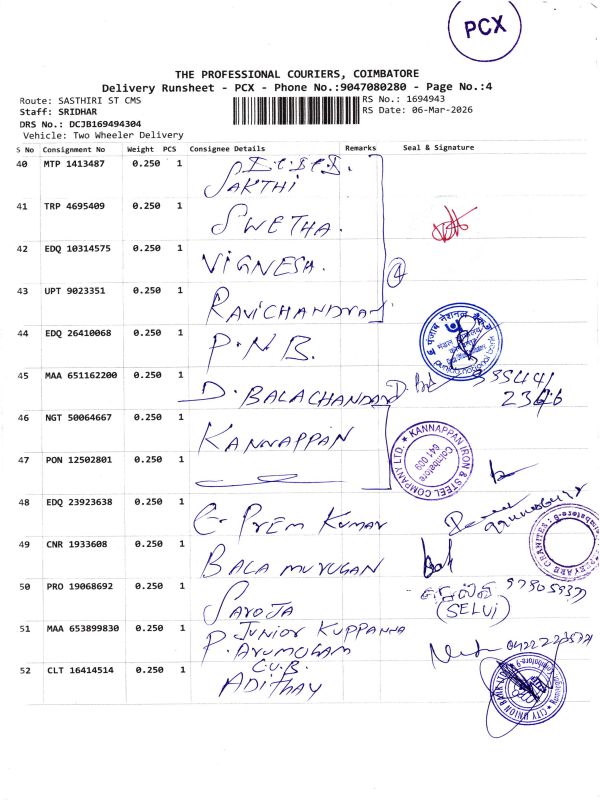 PCX
THE PROFESSIONAL COURIERS, COIMBATORE
Delivery Runsheet - PCX - Phone No.:9047080280 - Page No.:4
Route: SASTHIRI ST CMS RS No.: 1694943
Staff: SRIDHAR RS Date: 06-Mar-2026
DRS No.: DCJB169494304
Vehicle: Two Wheeler Delivery
S No Consignment No Weight PCS Consignee Details Remarks Seal & Signature
40 MTP 1413487 0.250 1 SAKTHI
41 TRP 4695409 0.250 1 SWETHA.
42 EDQ 10314575 0.250 1 VIGNESH.
4
43 UPT 9023351 0.250 1 RAVICHANDRAN
44 EDQ 26410068 0.250 1 P.N.B.
45 MAA 651162200 0.250 1 D. BALACHANDAR
46 NGT 50064667 0.250 1 KANNAPPAN
KANNAPPAN IRON & STEEL COMPANY (P) LTD. Coimbatore 641 009
47 PON 12502801 0.250 1
48 EDQ 23923638 0.250 1 G. PREM KUMAR
49 CNR 1933608 0.250 1 BALA MURUGAN
50 PRO 19068692 0.250 1 SAROJA
(SELVI)
51 MAA 653899830 0.250 1 JUNIOR KUPPANNA
P. ARUMUGAM
52 CLT 16414514 0.250 1 C.U.B.
ADITHAY
CITY UNION BANK LTD